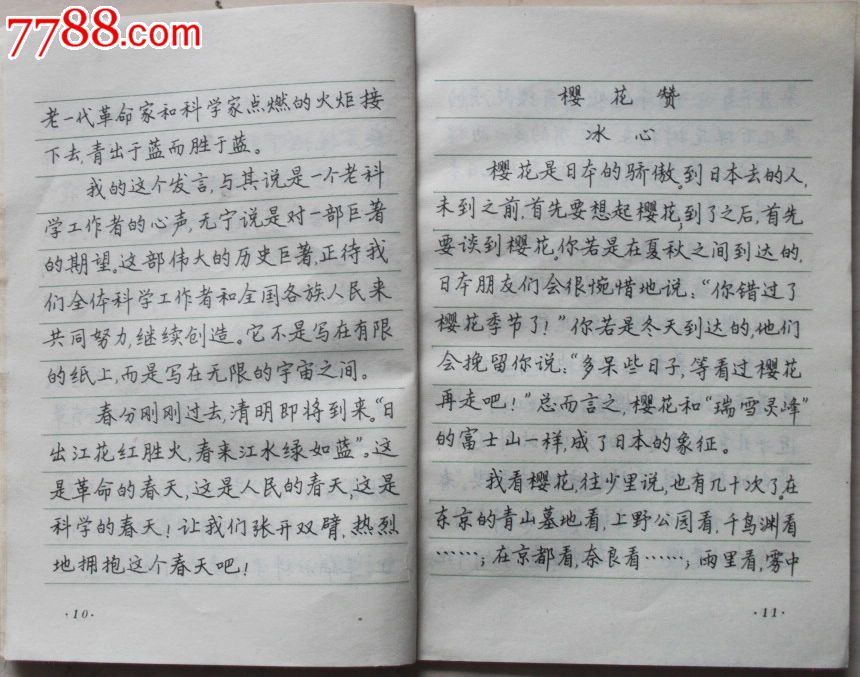 7788.com
老一代革命家和科学家点燃的火炬接
下去,青出于蓝而胜于蓝。
我的这个发言,与其说是一个老科
学工作者的心声,无宁说是对一部巨著
的期望。这部伟大的历史巨著,正待我
们全体科学工作者和全国各族人民来
共同努力,继续创造。它不是写在有限
的纸上,而是写在无限的宇宙之间。
春分刚刚过去,清明即将到来。“日
出江花红胜火,春来江水绿如蓝”。这
是革命的春天,这是人民的春天,这是
科学的春天!让我们张开双臂,热烈
地拥抱这个春天吧!
·10·
樱花赞
冰心
樱花是日本的骄傲。到日本去的人,
未到之前,首先要想起樱花;到了之后,首先
要谈到樱花。你若是在夏秋之间到达的,
日本朋友们会很惋惜地说:“你错过了
樱花季节了!”你若是冬天到达的,他们
会挽留你说:“多呆些日子,等看过樱花
再走吧!”总而言之,樱花和“瑞雪灵峰”
的富士山一样,成了日本的象征。
我看樱花,往少里说,也有几十次了。在
东京的青山墓地看,上野公园看,千鸟渊看
……;在京都看,奈良看……;雨里看,雾中
·11·